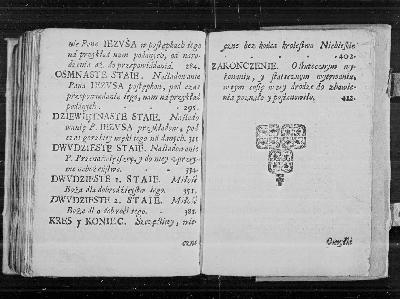 nie Pana IEZVSA w postępkach iego
na przykład nam podanych, od naro-
dzenia aż do przepowiadania. 284.
OSMNASTE STAIE. Naśladowanie
Pana IEZVSA postępkow, pod czas
przepowiadania iego, nam na przykład
podanych. - 295.
DZIEWIĘTNASTE STAIE. Naślado
wanie P. IEZVSA przykładow, pod
czas gorzkiey męki iego na danych. 311
DWVDZIESTE STAIE. Naśladowanie
P. Przenaświętszey, y do niey
me nabożeństwo. - 332.
DWVDZIESTE 1. STAIE. Miłość
Boża dla dobrodzieystw iego. 351.
DWVDZIESTE 2. STAIE. Miłość
Boża dla dobroći iego. - 381.
KRES y KONIEC. Szczęśliwy, wie-
czne
czne bez końca krolestwo Niebieskie
- 402.
ZAKONCZENIE. O statecznym wy-
konaniu, y statecznym wytrwaniu,
w tym coś wzwyż drodze do zbawie-
nia poznało y postanowiło. 422.